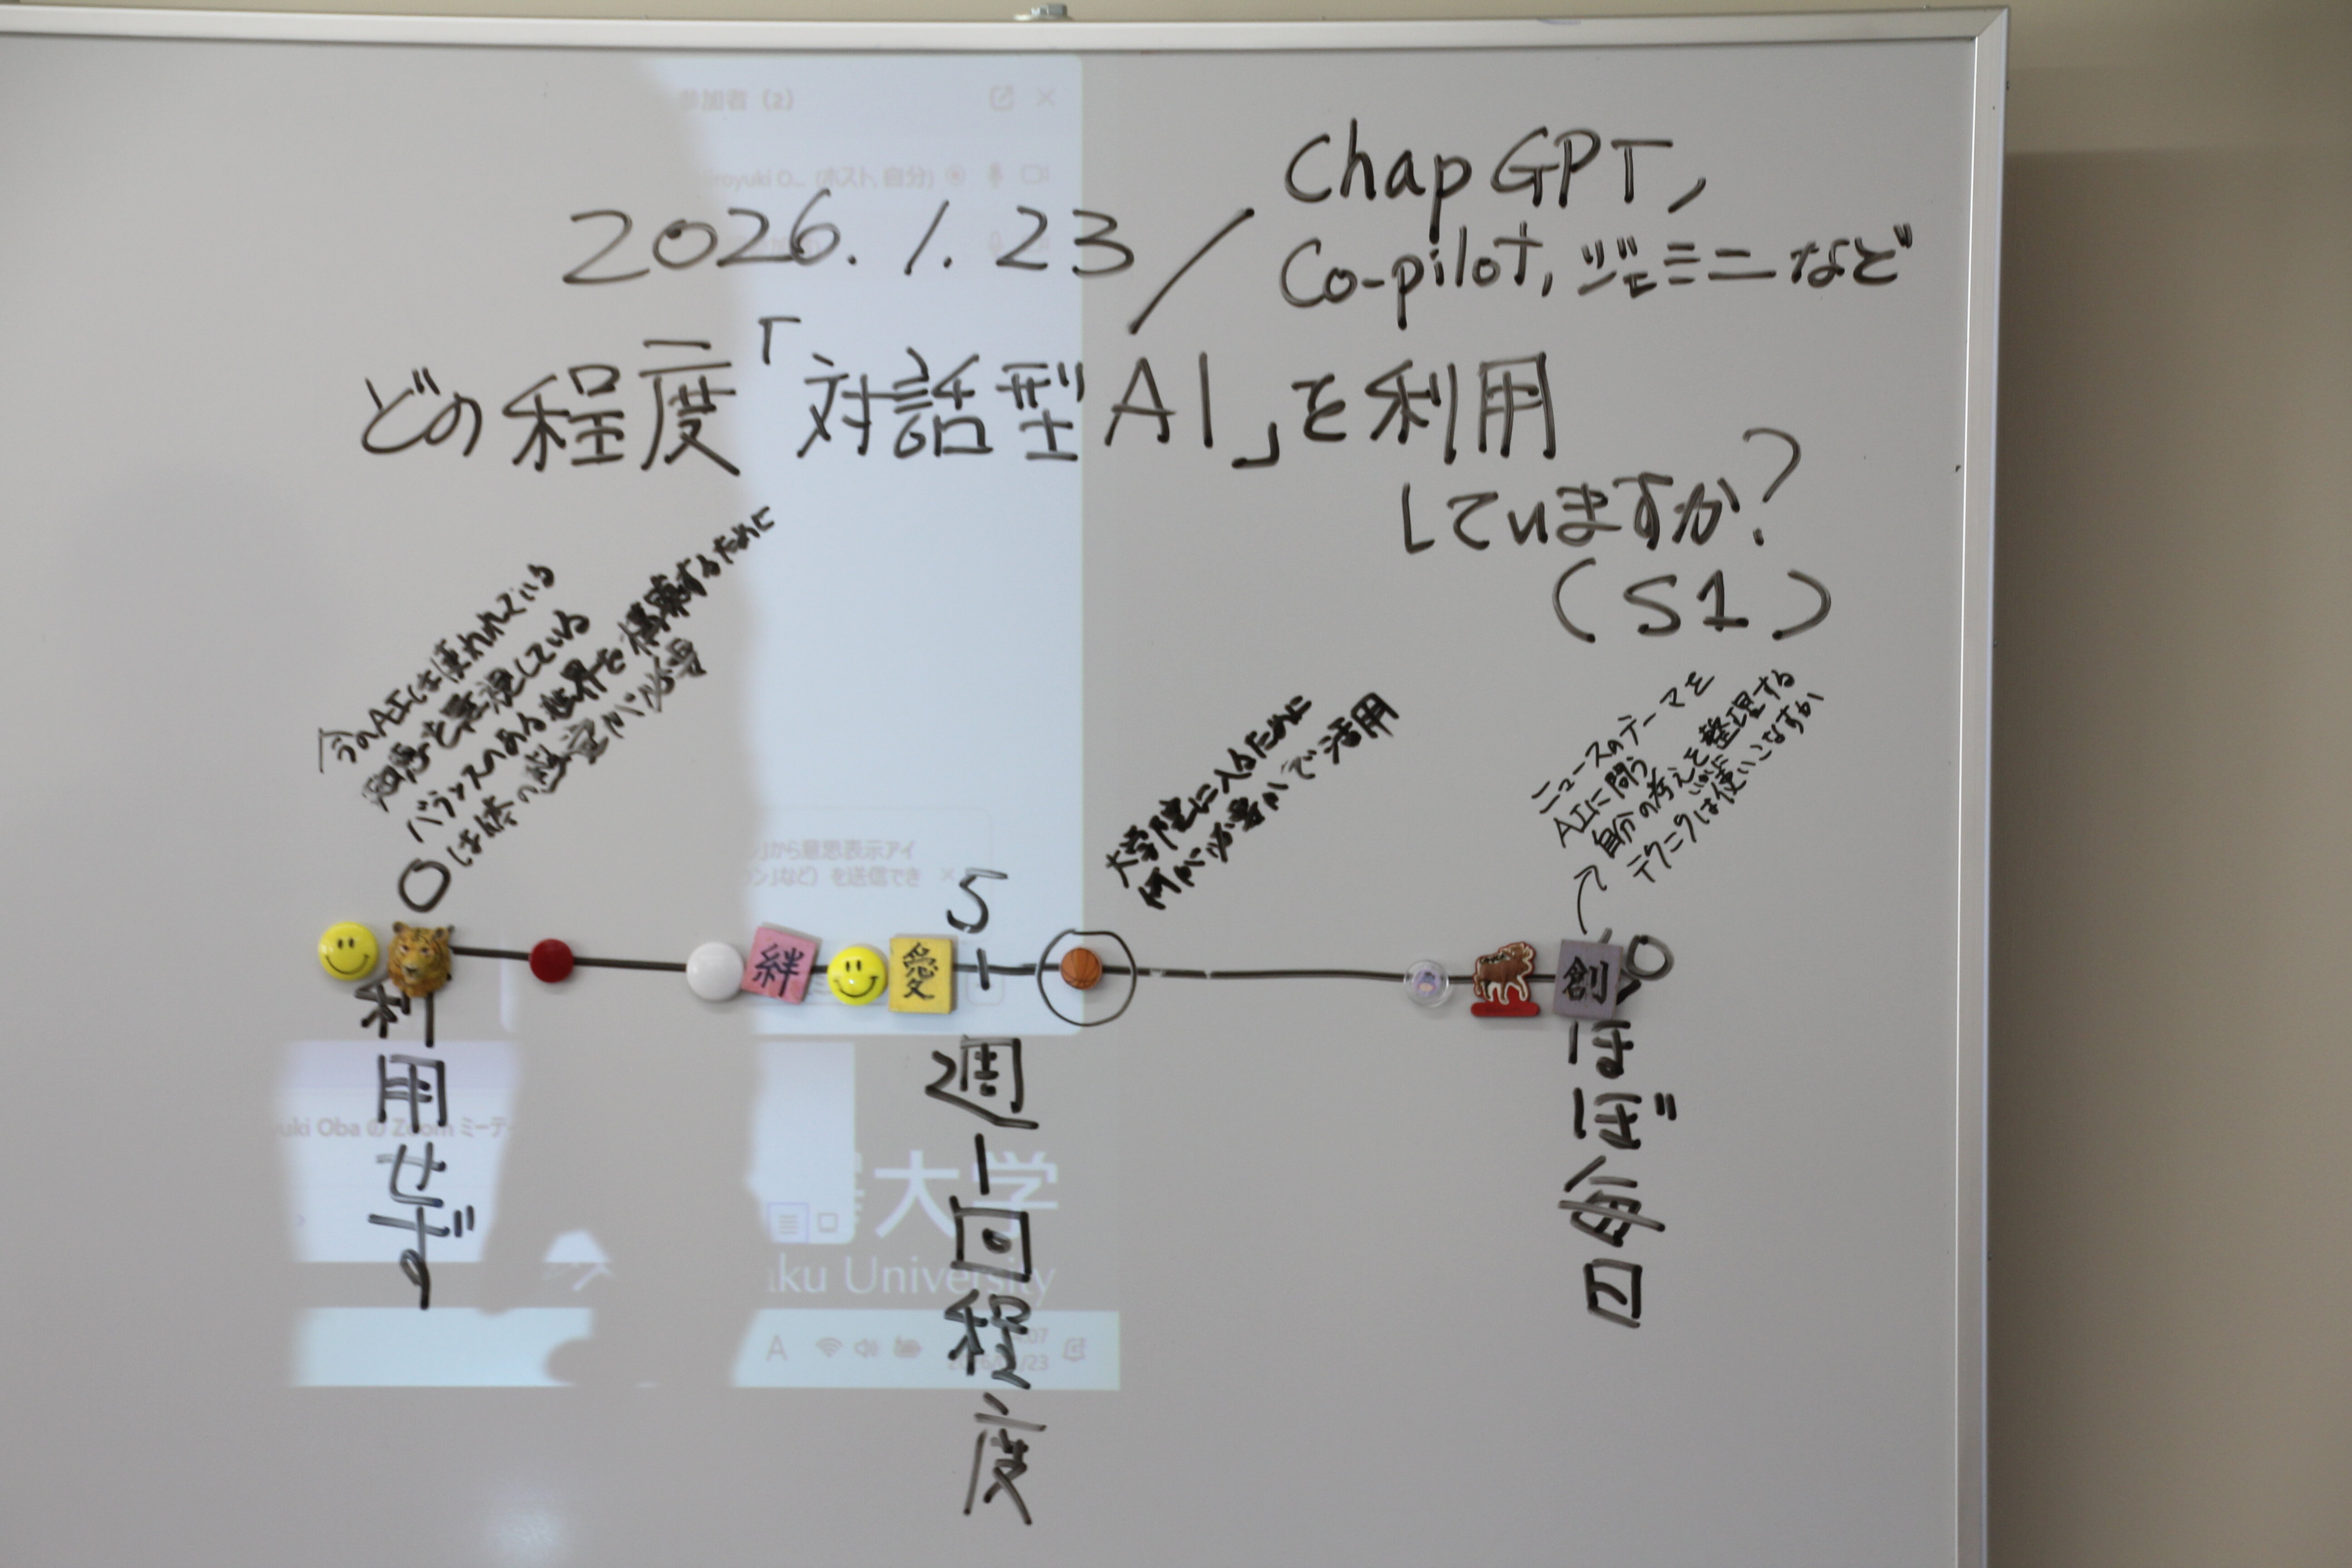 参加者 (2)
Hiroyuki O... (ホスト, 自分)
ChapGPT,
2026.1.23
Co-pilot, ジェミニなど
どの程度「対話型AI」を利用
していますか?
(S1)
今のAIは使われている
バランスのある世界を構築するために
0は修の
ニュースのテーマを
AIに問う
自分の考えを整理する
テクニックは使いこなすか
大学院に入るために
何が必要かで活用
から意思表示アイ
ン」など) を送信でき
0
5
絆
愛
創
利用せず
週1回程度
ほぼ毎日
yuki Oba の Zoom ミーテ
大学
ku University
A